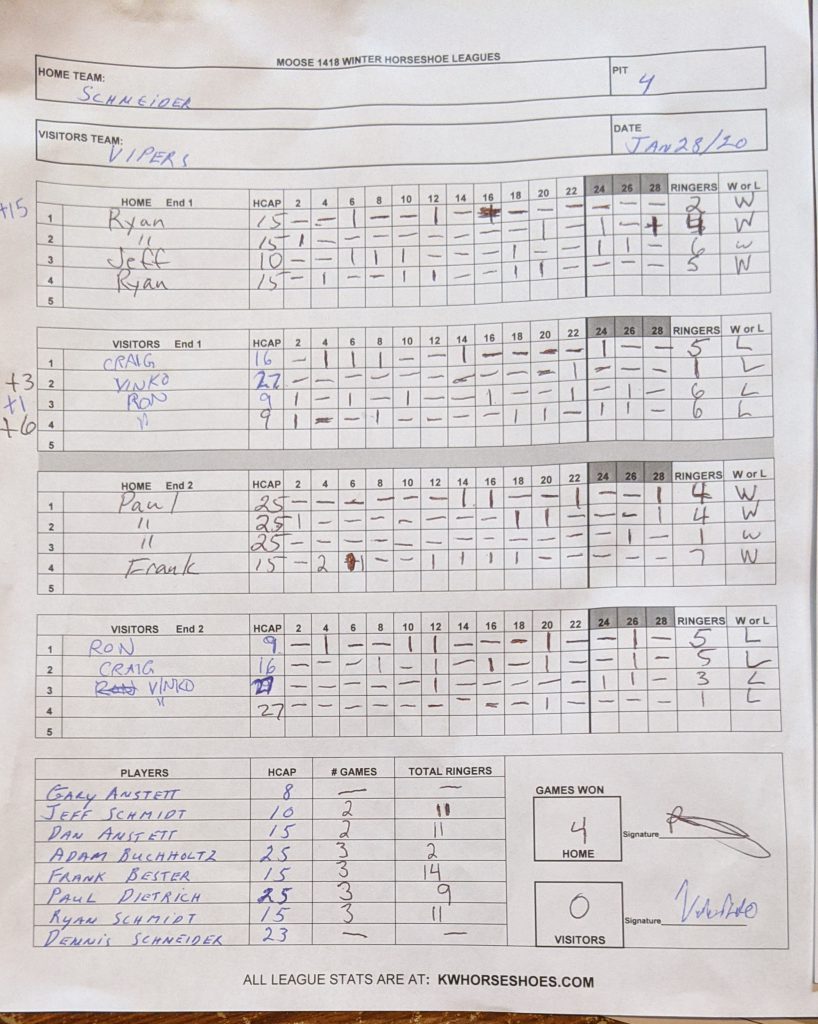 MOOSE 1418 WINTER HORSESHOE LEAGUES
HOME TEAM: SCHNEIDER PIT 4
VISITORS TEAM: VIPERS DATE JAN 28/20
HOME End 1 HCAP 2 4 6 8 10 12 14 16 18 20 22 24 26 28 RINGERS W or L
+15 1 Ryan 15 – – 1 – – 1 – – – – – – – 2 W
2 " 15 1 – – – – – – – – 1 – 1 – + 4 W
3 Jeff 10 – – 1 1 1 – – – 1 – – 1 1 – 6 W
4 Ryan 15 – 1 – – 1 1 – – 1 1 – – – – 5 W
5
VISITORS End 1 HCAP 2 4 6 8 10 12 14 16 18 20 22 24 26 28 RINGERS W or L
1 CRAIG 16 – 1 1 1 – – 1 – – – – 1 – – 5 L
+3 2 VINKO 27 – – – – – – – – – – 1 – – – 1 L
+1 3 RON 9 1 – 1 – 1 – – 1 – – 1 – 1 – 6 L
+6 4 " 9 1 – – 1 – – – – 1 1 – 1 1 – 6 L
5
HOME End 2 HCAP 2 4 6 8 10 12 14 16 18 20 22 24 26 28 RINGERS W or L
1 Paul 25 – – – – – – 1 1 – – 1 – – 1 4 W
2 " 25 1 – – – – – – – 1 1 – – – 1 4 W
3 " 25 – – – – – – – – – – – – 1 – 1 W
4 Frank 15 – 2 1 – – 1 1 1 1 – – – – – 7 W
5
VISITORS End 2 HCAP 2 4 6 8 10 12 14 16 18 20 22 24 26 28 RINGERS W or L
1 RON 9 – 1 – – 1 1 – – – 1 – – 1 – 5 L
2 CRAIG 16 – – – 1 – 1 – 1 – 1 – – 1 – 5 L
3 RON VINKO 27 – – – – – 1 – – – – – 1 1 – 3 L
4 " 27 – – – – – – – – – 1 – – – – 1 L
5
PLAYERS HCAP # GAMES TOTAL RINGERS
GARY ANSTETT 8 – –
JEFF SCHMIDT 10 2 11
DAN ANSTETT 15 2 11
ADAM BUCHHOLTZ 25 3 2
FRANK BESTER 15 3 14
PAUL DIETRICH 25 3 9
RYAN SCHMIDT 15 3 11
DENNIS SCHNEIDER 23 – –
GAMES WON
4
HOME
Signature
0
VISITORS
Signature
ALL LEAGUE STATS ARE AT: KWHORSESHOES.COM